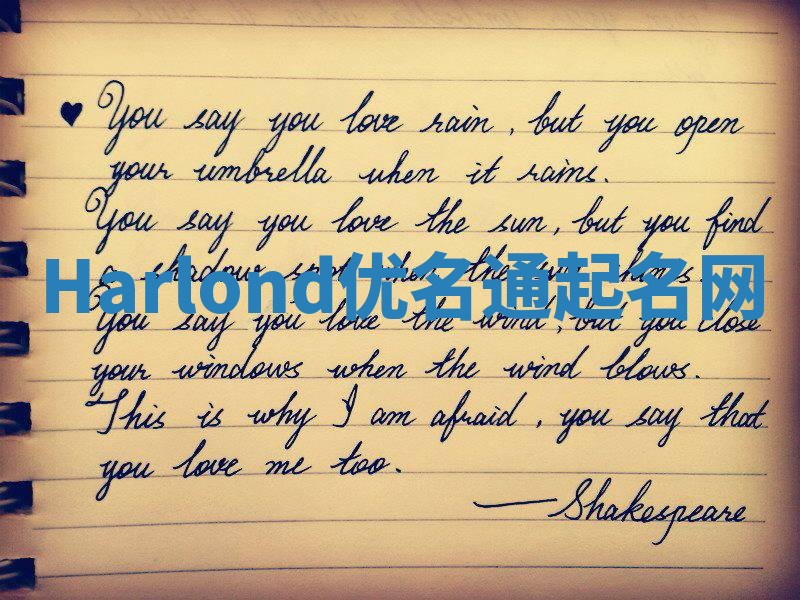 ♥ You say you love rain, but you open
your umbrella when it rains.
You say you love the sun, but you find
a shadow spot when the sun shines.
Harlond优名通起名网
You say you love the wind, but you close
your windows when the wind blows.
This is why I am afraid, you say that
you love me too.
—Shakespeare